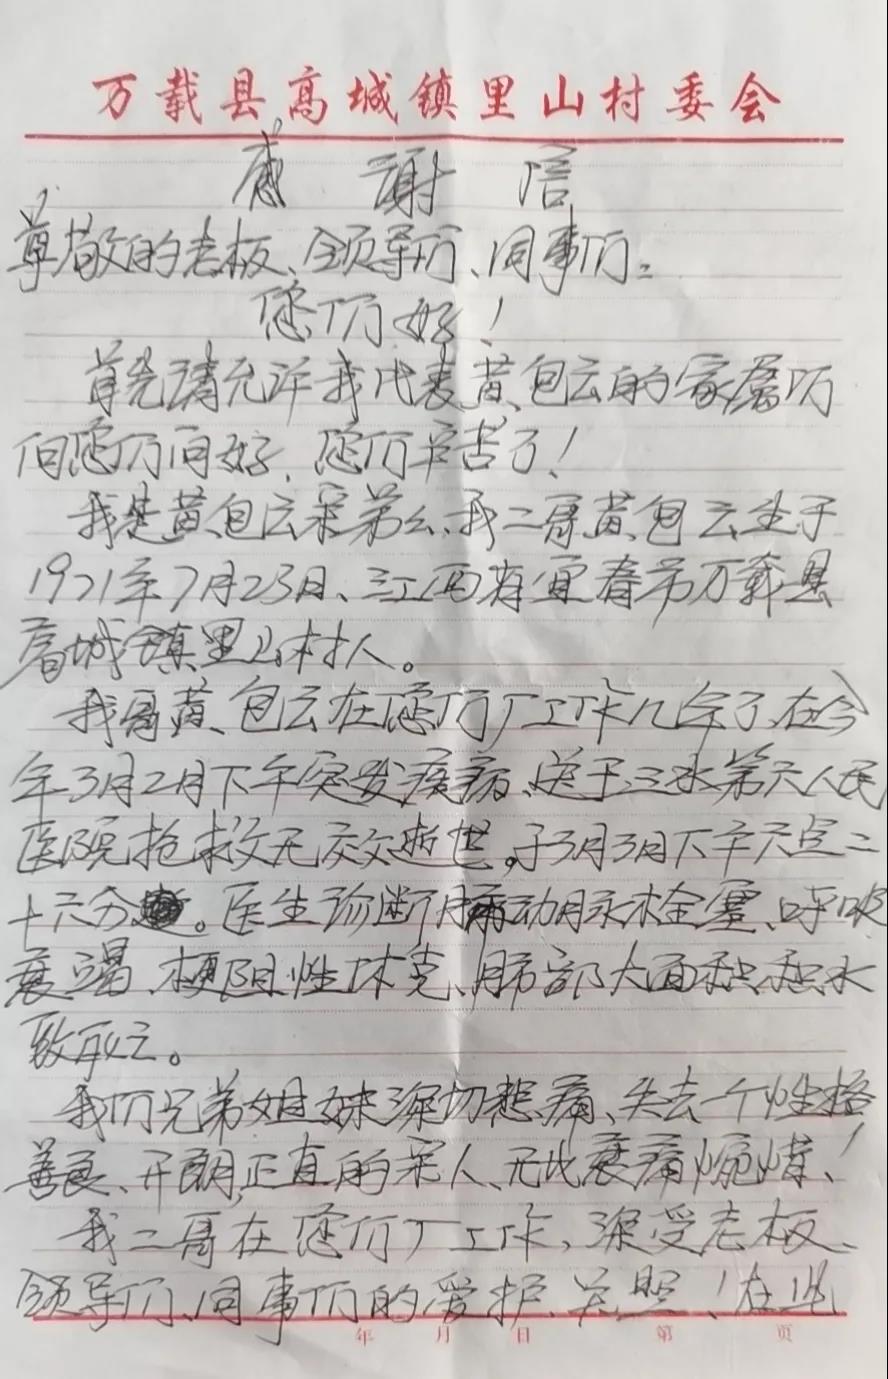 万载县高城镇里山村委会
感谢信
尊敬的老板、领导们、同事们:
您们好!
首先请允许我代表黄包云的家属们
向您们问好,您们辛苦了!
我是黄包云亲弟么、我二哥黄包云生于
1971年7月23日、江西省宜春市万载县
高城镇里山村人。
我哥黄包云在您们厂工作几年了,在今
年3月2月下午突发疾病、送于三水第六人民
医院抢救无效逝世。于3月3日下午六点二
十六分。医生诊断肺动脉栓塞、呼吸
衰竭、梗阻性休克、肺部大面积积水
致死亡。
我们兄弟姐妹深切悲痛、失去一个性格
善良、开朗,正直的亲人、无比哀痛惋惜、!
我二哥在您们厂工作,深受老板、
领导们、同事们的爱护、关照!在此
年 月 日 第 页